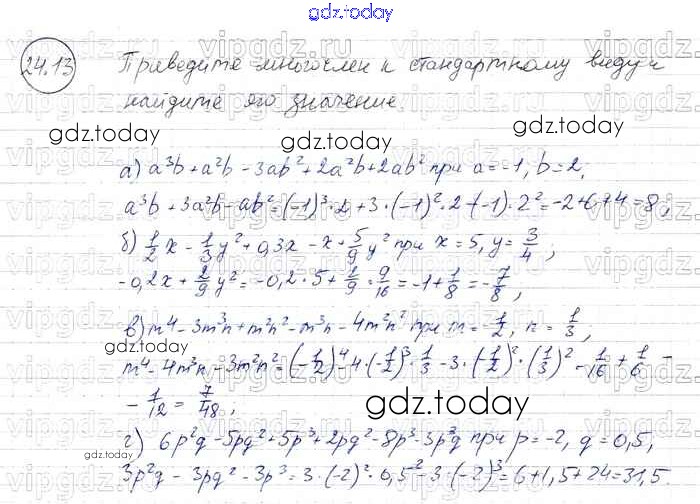 gdz.today
24.13 Приведите многочлен к стандартному виду и
найдите его значение.
gdz.today gdz.today gdz.today
а) a³b + a²b - 3ab² + 2a²b + 2ab² при a = -1, b = 2,
a³b + 3a²b - ab² = (-1)³ · 2 + 3 · (-1)² · 2 - (-1) · 2² = -2 + 6 + 4 = 8;
б) 1/2 x - 1/3 y² + 0,3x - x + 5/9 y² при x = 5, y = 3/4;
-0,2x + 2/9 y² = -0,2 · 5 + 2/9 · 9/16 = -1 + 1/8 = -7/8;
в) m⁴ - 3m³n + m²n² - m³n - 4m²n² при m = -1/2, n = 1/3,
gdz.today
m⁴ - 4m³n - 3m²n² = (-1/2)⁴ - 4 · (-1/2)³ · 1/3 - 3 · (-1/2)² · (1/3)² = 1/16 + 1/6 -
- 1/12 = 7/48;
gdz.today
г) 6p²q - 5pq² + 5p³ + 2pq² - 8p³ - 3p²q при p = -2, q = 0,5,
gdz.today
3p²q - 3pq² - 3p³ = 3 · (-2)² · 0,5 - 3 · (-2)³ = 6 + 1,5 + 24 = 31,5.